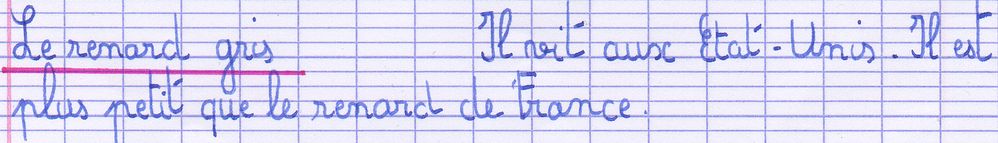 Le renard gris Il vit aux Etat-Unis. Il est
plus petit que le renard de France.